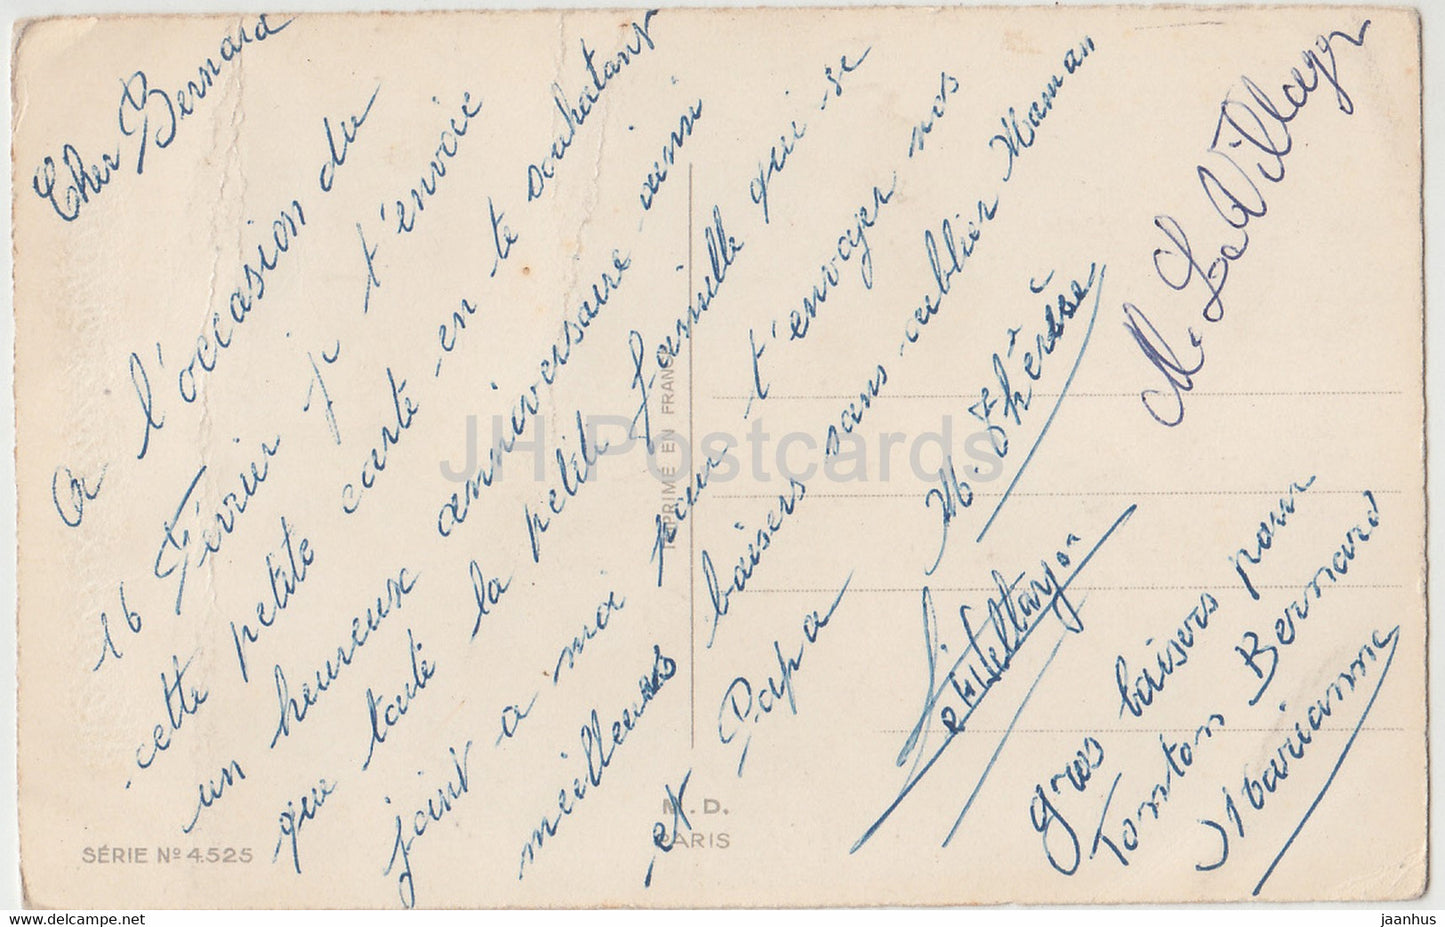 Cher Bernard
A l'occasion du
16 Février je t'envoie
cette petite carte en te souhaitant
un heureux anniversaire ainsi
que toute la petite famille qui se
joint a moi pour t'envoyer nos
meilleurs baisers sans oublier Maman
et Papa
M. Thérèse
M Le Villager
gros baisers pour
Tonton Bernard
Marianne
IMPRIMÉ EN FRANCE
SÉRIE No 4.525
M.D.
PARIS
JH Postcards
jaanhus@delcampe.net